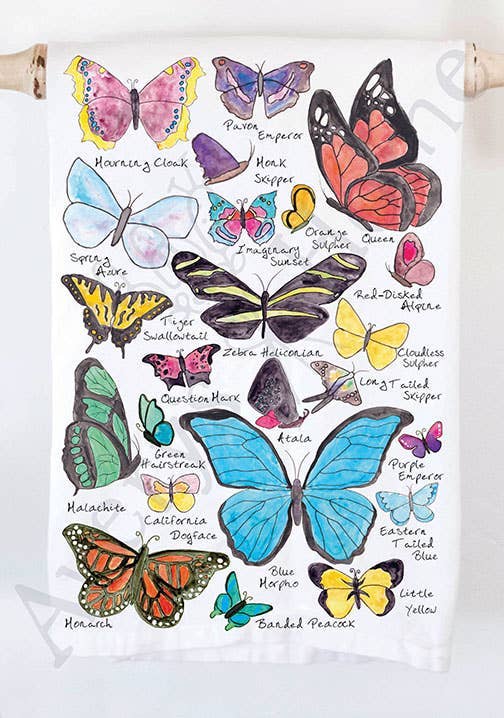 Mourning Cloak
Pavon
Emperor
Monk
Skipper
Queen
Spring
Azure
Imaginary
Sunset
Orange
Sulpher
Red-Disked
Alpine
Tiger
Swallowtail
Zebra Heliconian
Cloudless
Sulpher
Question Mark
Long Tailed
Skipper
Atala
Green
Hairstreak
Purple
Emperor
Malachite
California
Dogface
Eastern
Tailed
Blue
Blue
Morpho
Little
Yellow
Monarch
Banded Peacock